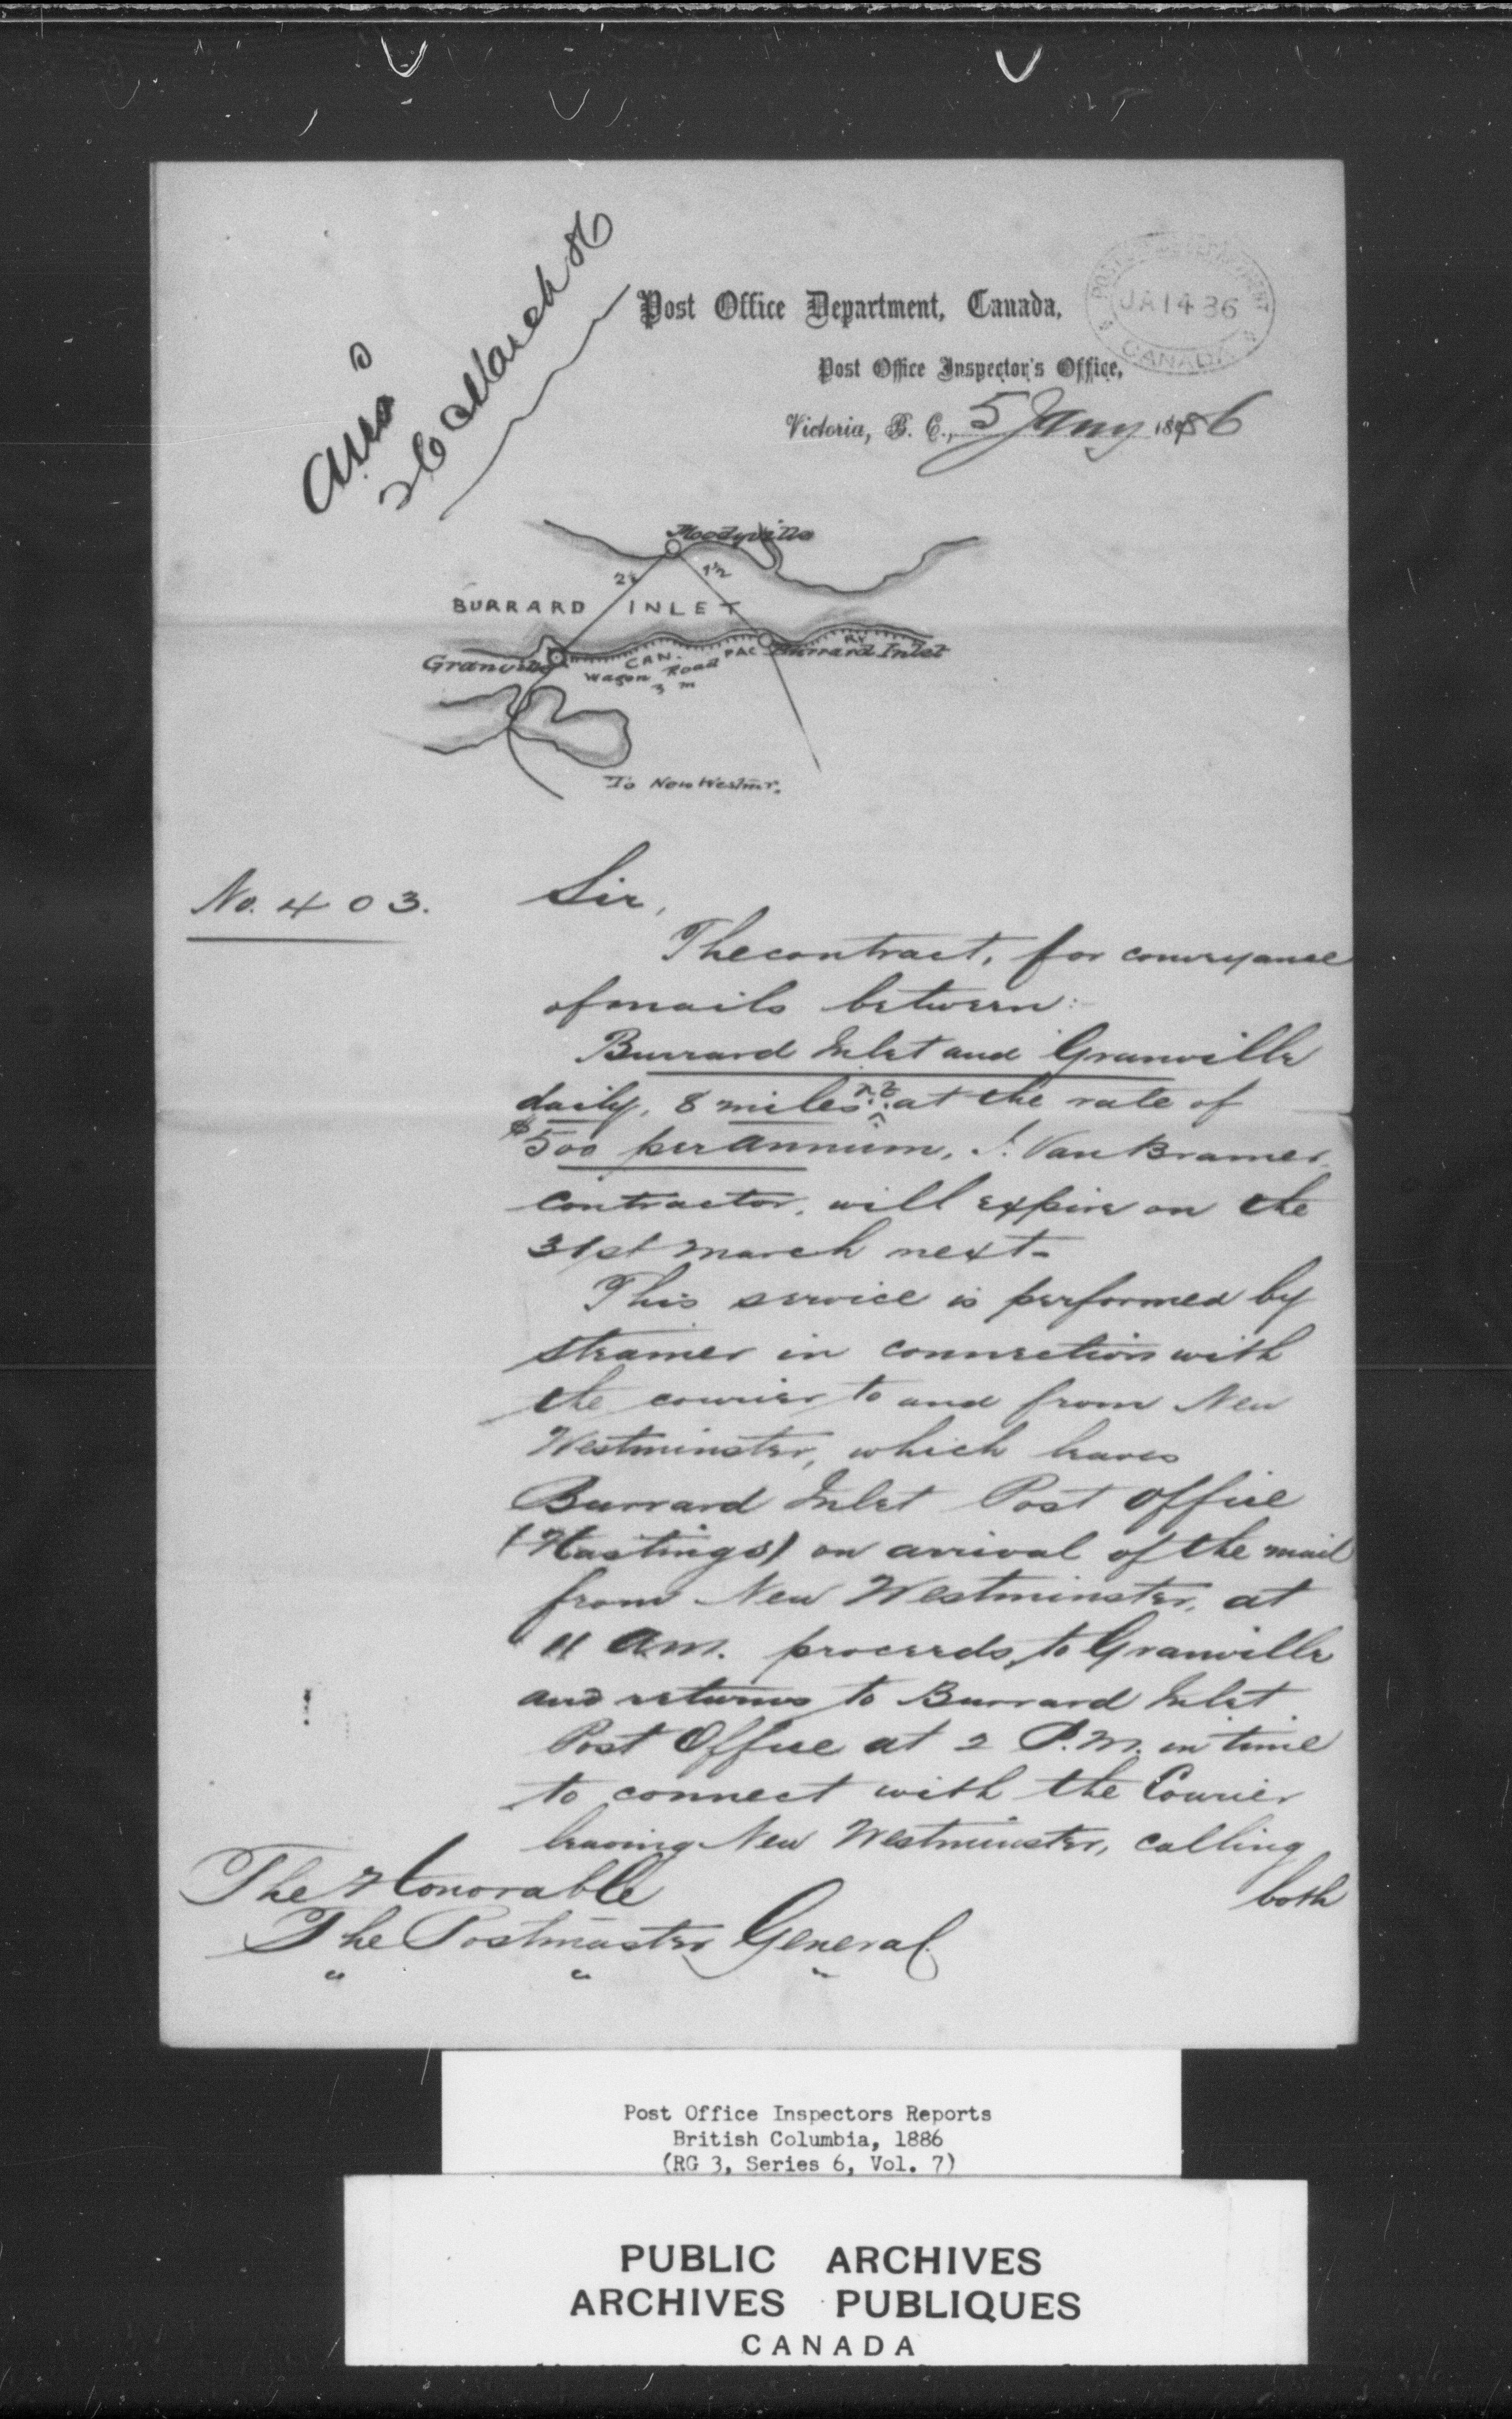 ansd
26 March 86
Post Office Department, Canada,
JA 14 86
CANADA
Post Office Inspector's Office,
Victoria, B. C., 5 Jany 1886
Moodyville
2 1½
BURRARD INLET
Granville CAN. PAC RY Burrard Inlet
Wagon Road
3 m
To New Westmr.
No. 403.
Sir,
The contract, for conveyance
of mails between:-
Burrard Inlet and Granville
daily, 8 miles at the rate of
$500 per annum, J. Van Bramer
contractor, will expire on the
31st March next-
This service is performed by
steamer in connection with
the courier to and from New
Westminster, which leaves
Burrard Inlet Post Office
(Hastings) on arrival of the mail
from New Westminster, at
11 a.m. proceeds to Granville
and returns to Burrard Inlet
Post Office at 2 P.M. in time
to connect with the Courier
leaving New Westminster, calling
both
The Honorable
The Postmaster General
" " "
Post Office Inspectors Reports
British Columbia, 1886
(RG 3, Series 6, Vol. 7)
PUBLIC ARCHIVES
ARCHIVES PUBLIQUES
CANADA